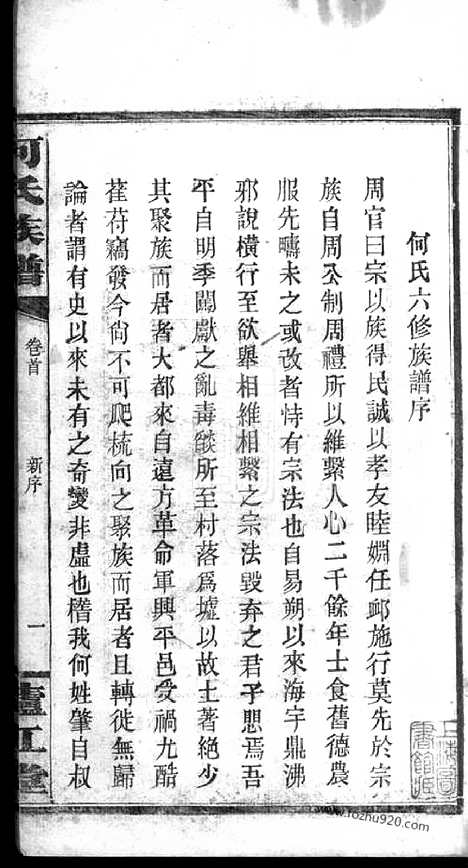 何氏六修族譜序
周官曰宗以族得民誠以孝友睦婣任邺施行莫先於宗
族自周公制周禮所以維繫人心二千餘年士食舊德農
服先疇未之或改者恃有宗法也自易朔以來海宇鼎沸
邪說橫行至欲舉相維相繫之宗法毀弃之君子思焉吾
平自明季闖獻之亂毒燄所至村落爲墟以故土著絕少
其聚族而居者大都來自遠方革命軍興平邑受禍尤酷
萑苻竊發今尙不可爬梳向之聚族而居者且轉徙無歸
論者謂有史以來未有之奇變非虛也稽我何姓肇自叔
何氏族譜
卷首
新序
一
廬江堂
www.fozhu920.com